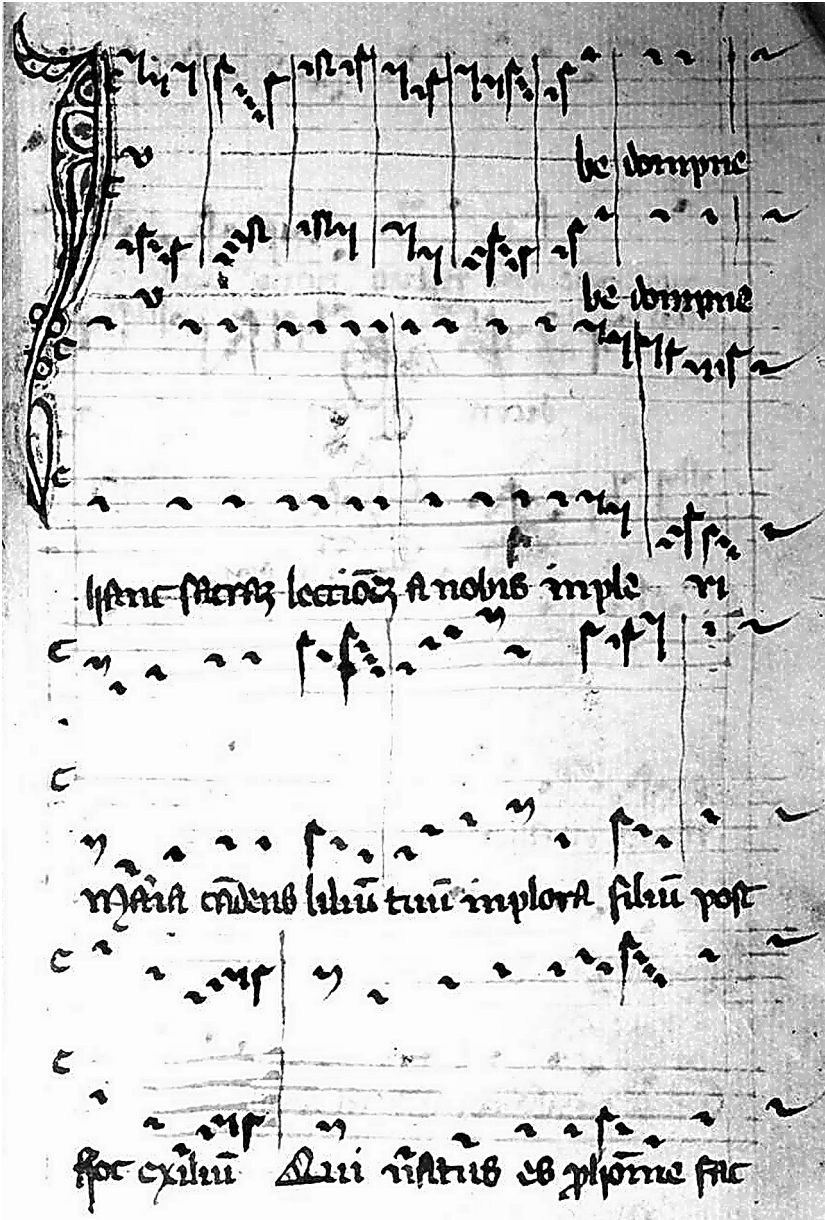 Iu be dompne
u be dompne
hanc sacraȝ lectiōeȝ a nobis imple ri
Maria cādens liliū tuū implora filiū post
hoc exiliū Qui natus es p hoīne fac